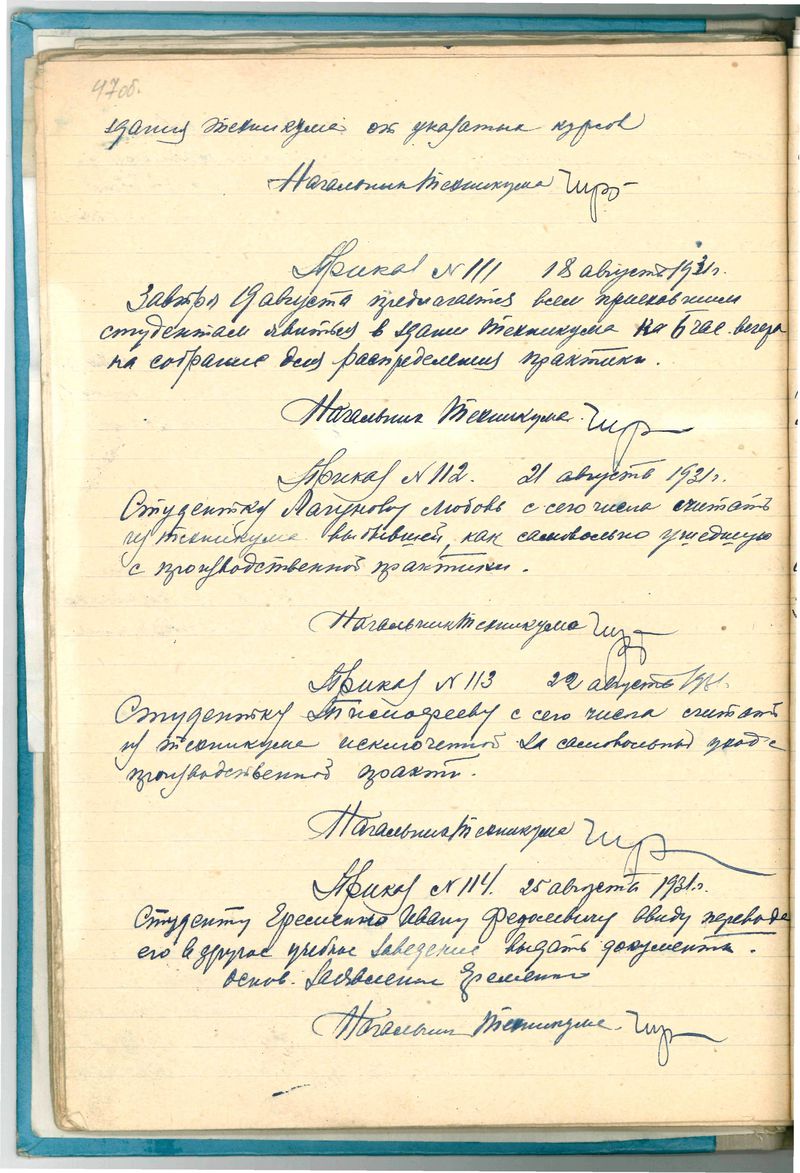 47об.
здания техникума от указаных курсов
Начальник Техникума
Приказ № 111 18 августа 1931г.
Завтра 19 августа предлагается всем приехавшим
студентам явиться в здании Техникума на 6 час. вечера
на собрание для распределения практики.
Начальник Техникума
Приказ № 112. 21 августа 1931г.
Студентку Любовь с сего числа считать
из техникума выбывшей, как самовольно ушедшую
с производственной практики.
Начальник Техникума
Приказ № 113 22 августа 1931г.
Студентку Тимофееву с сего числа считать
из техникума исключенной за самовольный уход с
производственной практ.
Начальник Техникума
Приказ № 114. 25 августа 1931г.
Студенту Еременко Ивану ввиду перевода
его в другое учебное заведение выдать документы.
Основ. Заявление Еременко
Начальник Техникума.